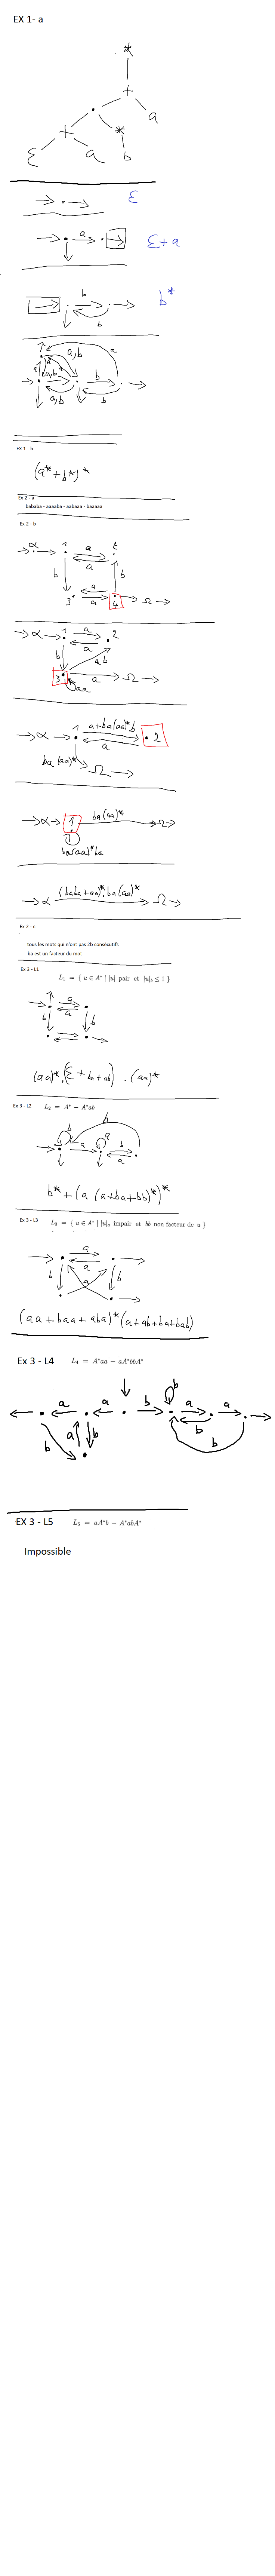 EX 1- a
*
+
. a
+ *
ε a b
ε
a
ε + a
b
b*
b
a
a,b
a
a,b
b
a,b
b
EX 1 - b
(a* + b*)*
Ex 2 - a
bababa - aaaaba - aabaaa - baaaaa
Ex 2 - b
α 1 a 2
a
b b
a
3 a 4 Ω
α 1 a 2
a
b ab
3 a Ω
aa
α 1 a+ba(aa)*b 2
a
ba(aa)* Ω
α 1 ba(aa)* Ω
ba(aa)*ba
α (baba+aa)*.ba(aa)* Ω
Ex 2 - c
tous les mots qui n'ont pas 2b consécutifs
ba est un facteur du mot
Ex 3 - L1
L₁ = { u ∈ A* | |u| pair et |u|b ≤ 1 }
a
a
b b
(aa)*.(ε + ba + ab) . (aa)*
Ex 3 - L2 L₂ = A* − A*ab
b
b a
a b
a
b* + (a (a+ba+bb)*)*
Ex 3 - L3 L₃ = { u ∈ A* | |u|a impair et bb non facteur de u }
a
a
b a b
(aa + baa + aba)*(a+ab+ba+bab)
Ex 3 - L4 L₄ = A*aa − aA*bbA*
b
a a b a a
b a b b
b
EX 3 - L5 L₅ = aA*b − A*abA*
Impossible